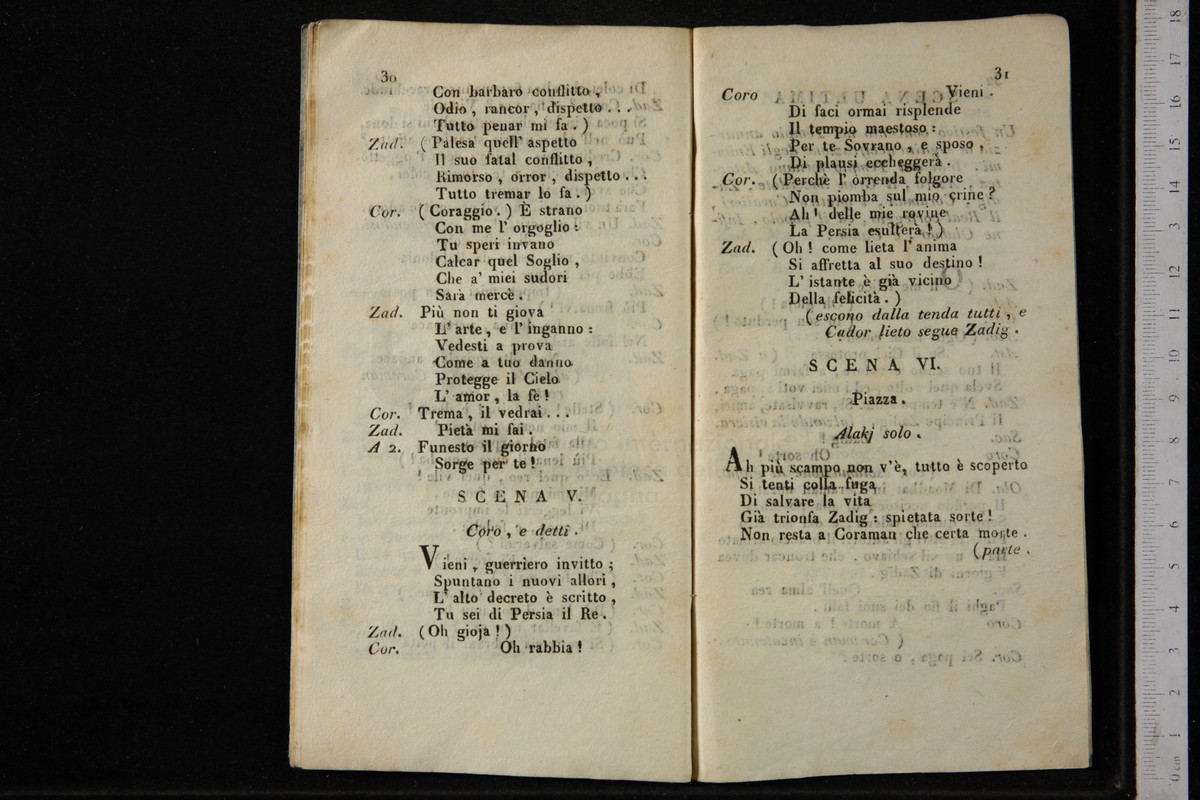 30
Con barbaro conflitto,
Odio, rancor, dispetto...
Tutto penar mi fa.)
Zad. (Palesa quell' aspetto
Il suo fatal conflitto,
Rimorso, orror, dispetto...
Tutto tremar lo fa.)
Cor. (Coraggio.) E strano
Con me l' orgoglio:
Tu speri invano
Calcar quel Soglio,
Che a' miei sudori
Sarà mercè.
Zad. Più non ti giova
L' arte, e l' inganno:
Vedesti a prova
Come a tuo danno
Protegge il Cielo
L' amor, la fè!
Cor. Trema, il vedrai...
Zad. Pietà mi fai.
A 2. Funesto il giorno
Sorge per te!
SCENA V.
Coro, e detti.
Vieni, guerriero invitto;
Spuntano i nuovi allori,
L' alto decreto è scritto,
Tu sei di Persia il Re.
Zad. (Oh gioja!)
Cor. Oh rabbia!
31
Coro Vieni.
Di faci ormai risplende
Il tempio maestoso:
Per te Sovrano, e sposo,
Di plausi eccheggerà.
Cor. (Perchè l' orrenda folgore
Non piomba sul mio crine?
Ah! delle mie rovine
La Persia esulterà!)
Zad. (Oh! come lieta l' anima
Si affretta al suo destino!
L' istante è già vicino
Della felicità.)
(escono dalla tenda tutti, e
Cador lieto segue Zadig.
SCENA VI.
Piazza.
Alakj solo.
Ah più scampo non v'è, tutto è scoperto
Si tenti colla fuga
Di salvare la vita
Già trionfa Zadig: spietata sorte!
Non resta a Coraman che certa morte.
(parte.